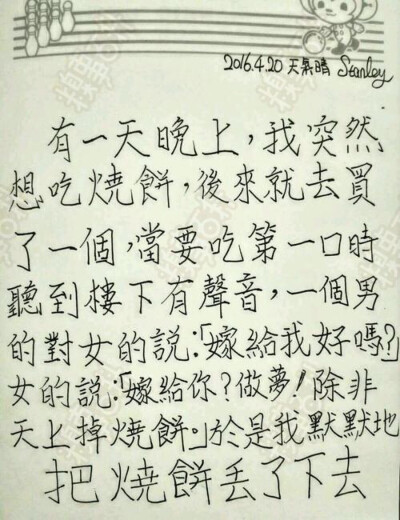 2016.4.20 天氣晴 Stanley
有一天晚上,我突然
想吃燒餅,後來就去買
了一個,當要吃第一口時
聽到樓下有聲音,一個男
的對女的說:「嫁給我好嗎?
女的說:「嫁給你?做夢!除非
天上掉燒餅。」於是我默默地
把燒餅丟了下去